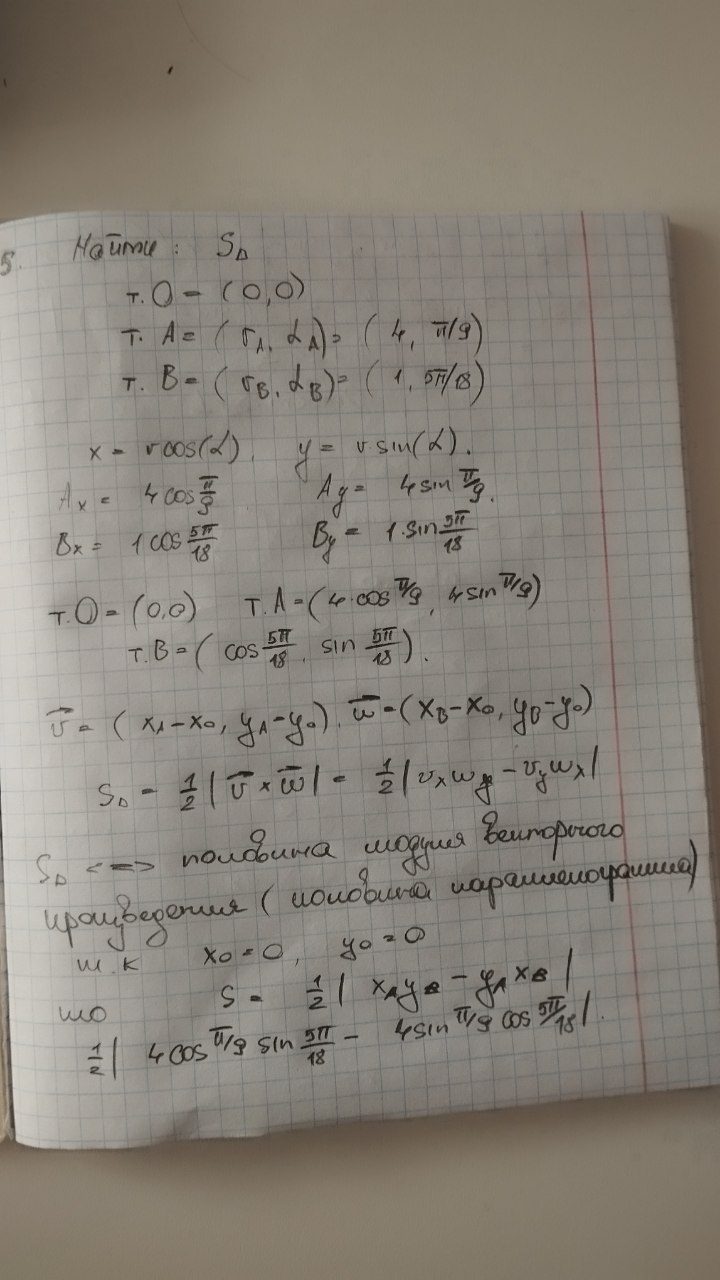 5. Найти: S∆
т. O = (0,0)
т. A = (r_A, α_A) = (4, π/9)
т. B = (r_B, α_B) = (1, 5π/18)
x = r cos(α), y = r sin(α).
A_x = 4 cos π/9 A_y = 4 sin π/9.
B_x = 1 cos 5π/18 B_y = 1·sin 5π/18
т. O = (0,0) т. A = (4·cos π/9, 4 sin π/9)
т. B = (cos 5π/18, sin 5π/18).
v⃗ = (x_A − x_0, y_A − y_0), w⃗ = (x_B − x_0, y_B − y_0)
S∆ = 1/2 |v⃗ × w⃗| = 1/2 |v_x w_y − v_y w_x|
S∆ <=> половина модуля векторного
произведения (половина параллелограмма)
т.к x_0 = 0, y_0 = 0
то S = 1/2 | x_A y_B − y_A x_B |
1/2 | 4 cos π/9 sin 5π/18 − 4 sin π/9 cos 5π/18 |.